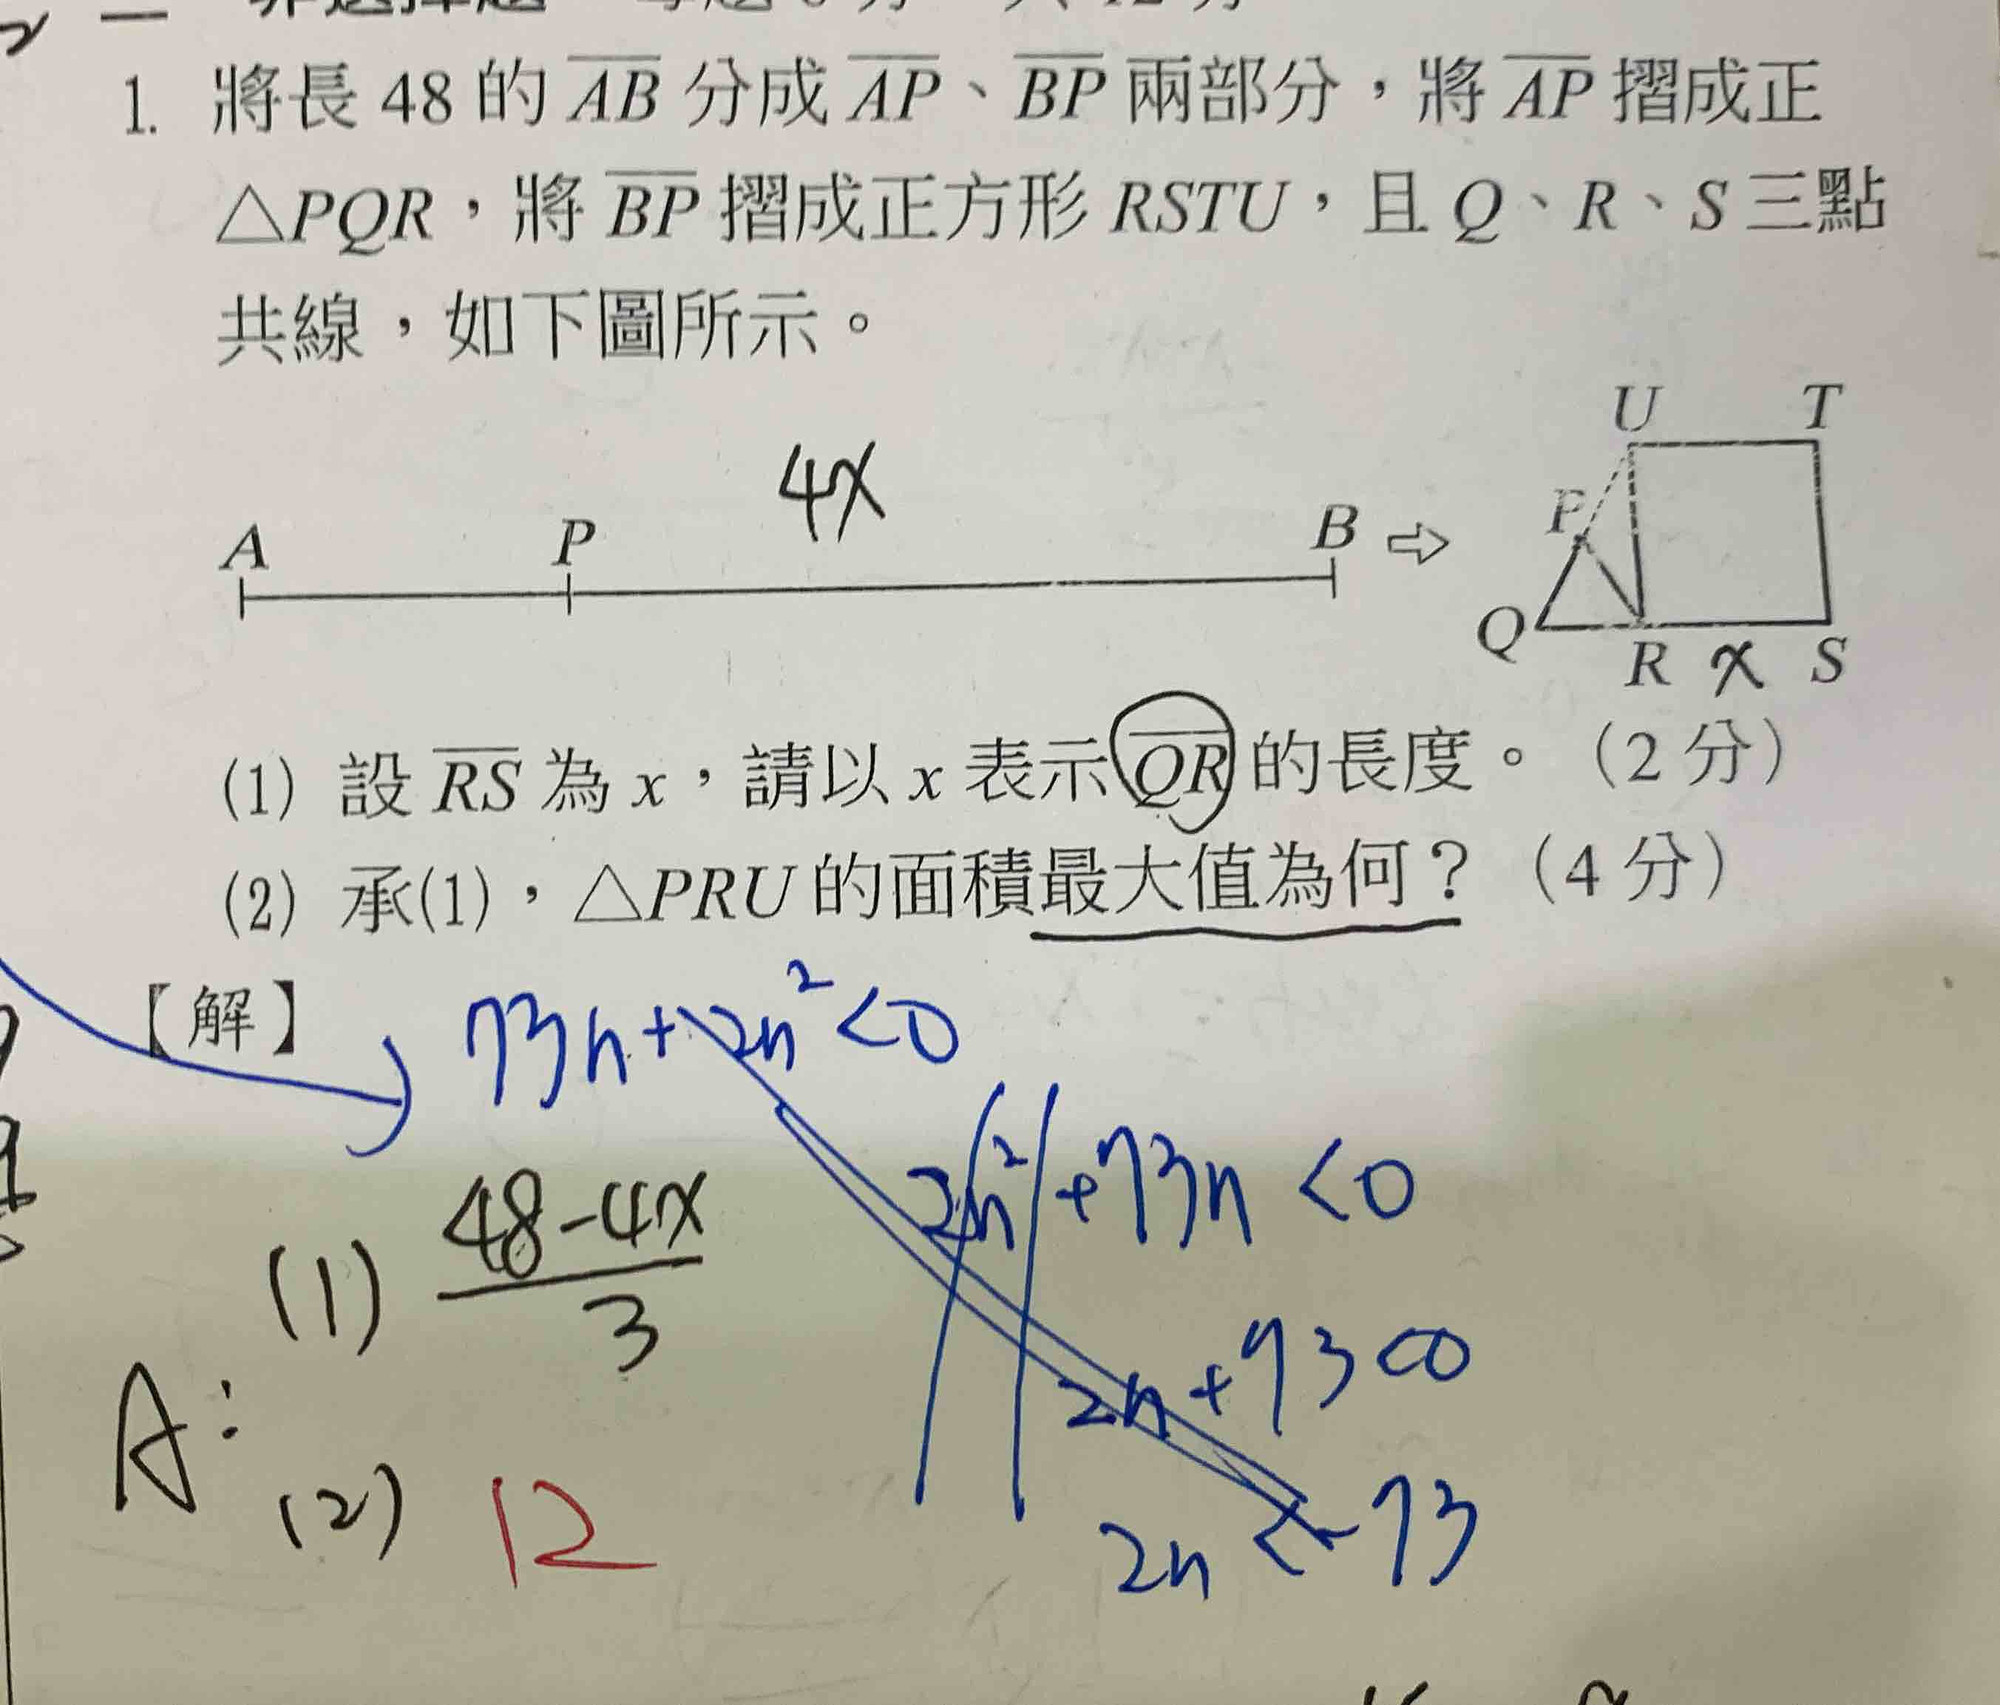 1. 將長 48 的 AB 分成 AP、BP 兩部分，將 AP 摺成正
△PQR，將 BP 摺成正方形 RSTU，且 Q、R、S 三點
共線，如下圖所示。
U T
4x
A P B ⇨ P
Q R x S
(1) 設 RS 為 x，請以 x 表示 QR 的長度。（2 分）
(2) 承(1)，△PRU 的面積最大值為何？（4 分）
【解】
73n+2n²<0
2n²+73n<0
(1) 48-4x
3
2n+73<0
A:
(2) 12
2n<-73